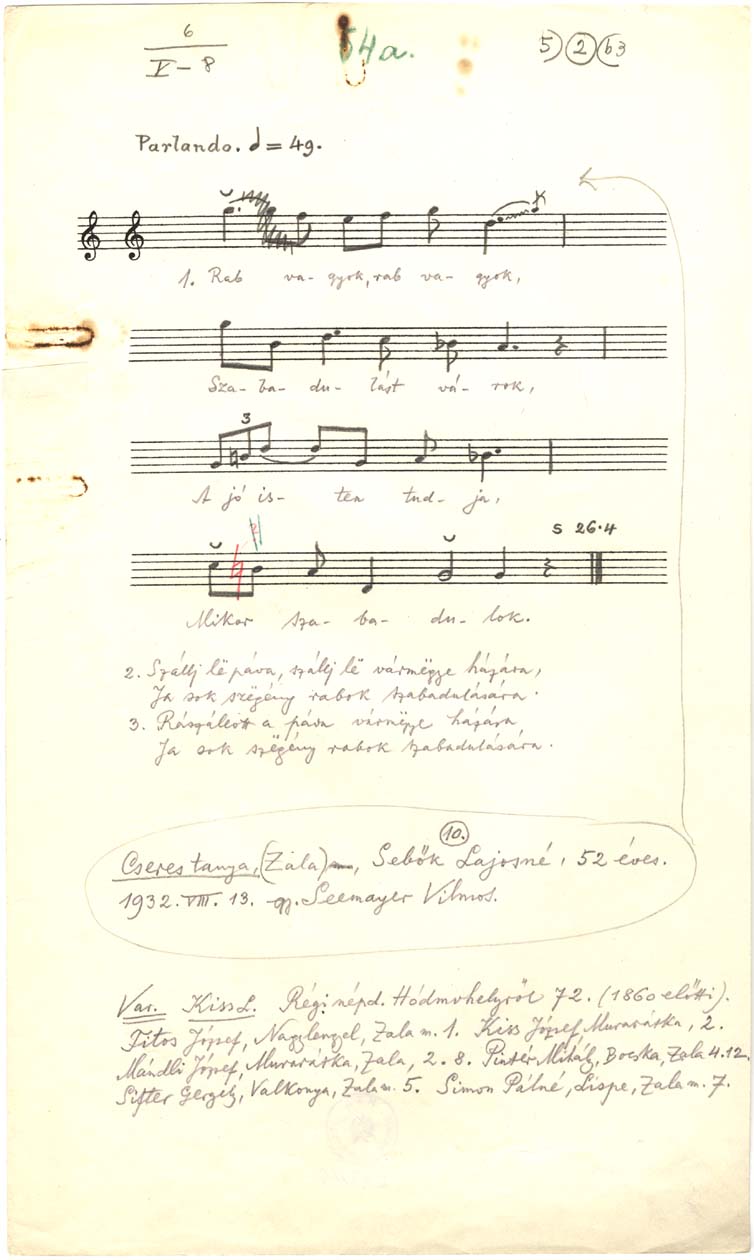 6
V-8
54a.
5) 2 (b3
Parlando. = 49.
1. Rab va- gyok, rab va- gyok,
Sza- ba- du- lást vá- rok,
3
A jó is- ten tud- ja,
5 26.4
Mikor sza- ba- du- lok.
2. Szállj lë páva, szállj lë vármëgye házára,
Ja sok szëgény rabok szabadulására.
3. Rászállott a páva vármëgye házára
Ja sok szëgény rabok szabadulására.
10.
Cserestanya, (Zala), Sebők Lajosné, 52 éves.
1932. VIII. 13. gy. Seemayer Vilmos.
Var. Kiss L. Régi népd. Hódmvhelyről 72. (1860 előtti).
Titos József, Nagylengyel, Zala m. 1. Kiss József, Murarátka, 2.
Mándli József, Murarátka, Zala, 2. 8. Pintér Mihály, Bocska, Zala 4.12.
Sifter Gergely, Valkonya, Zala m. 5. Simon Pálné, Lispe, Zala m. 7.